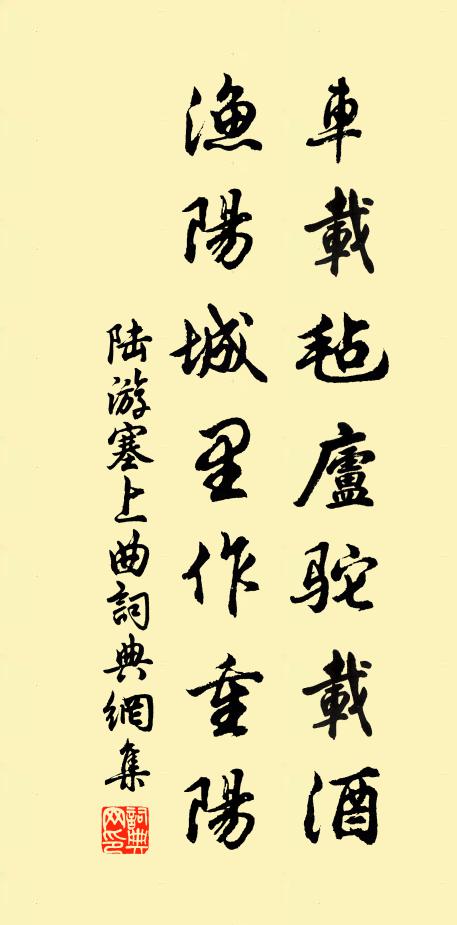 車載毡廬駝載酒
漁陽城里作重陽
陆游塞上曲詞典網集
詞典网印